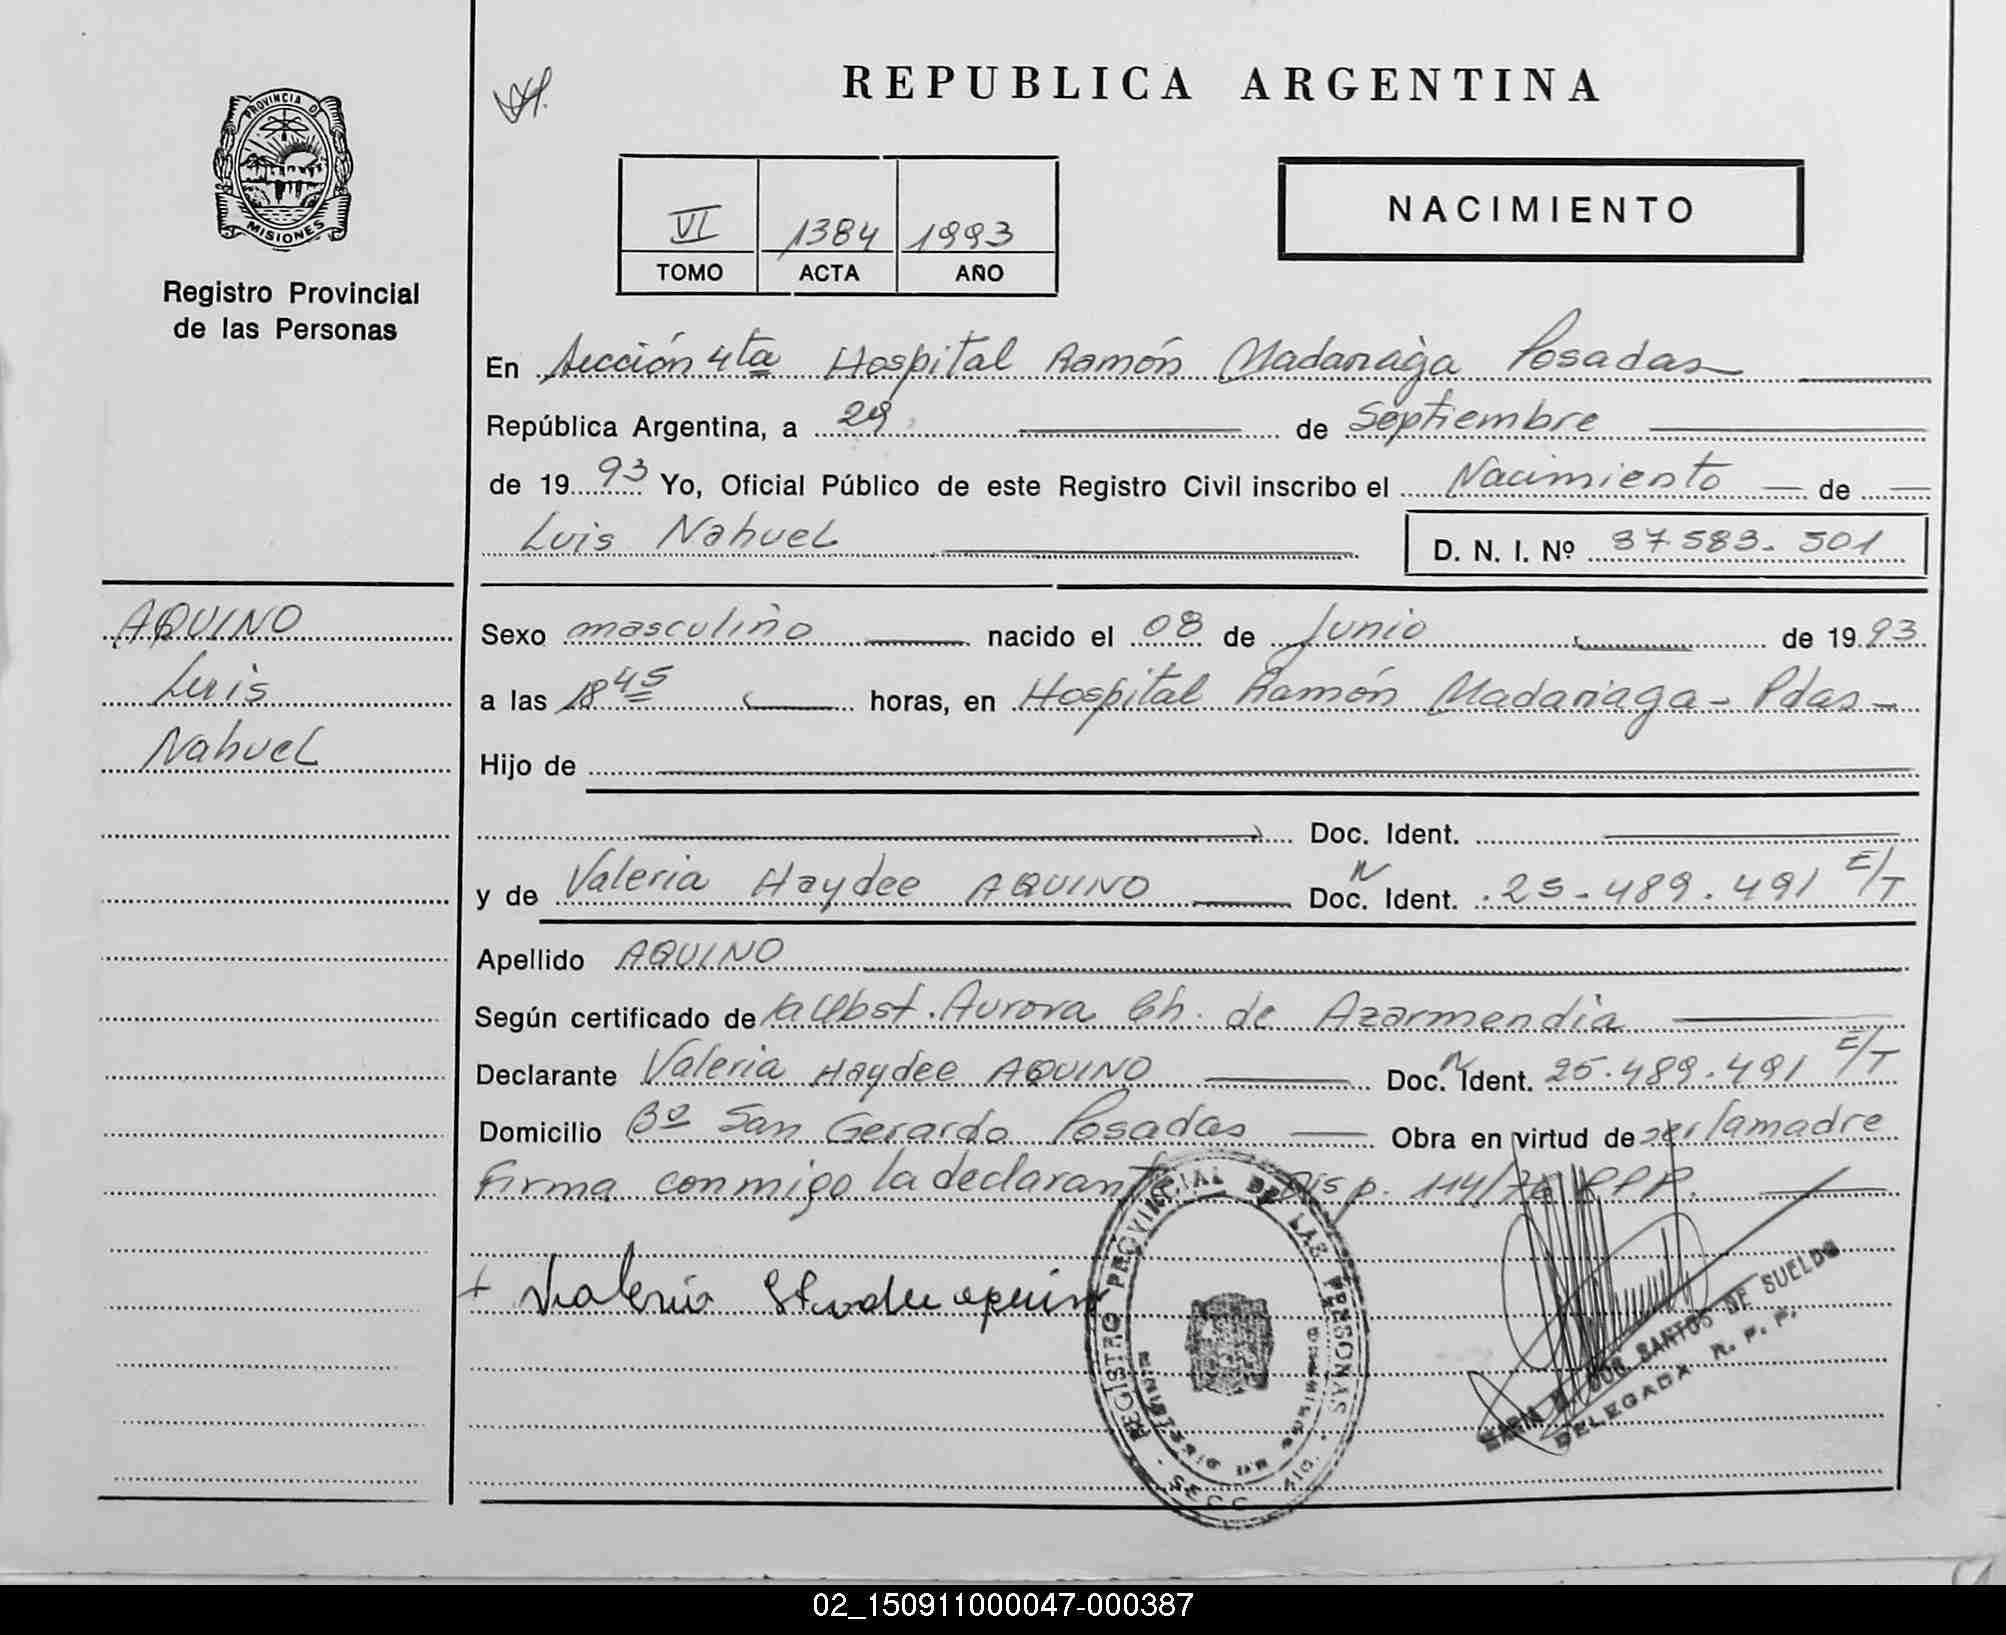 REPUBLICA ARGENTINA
PROVINCIA DE
MISIONES
Registro Provincial
de las Personas
VI 1384 1993
TOMO ACTA AÑO
NACIMIENTO
En Sección 4ta Hospital Ramón Madariaga Posadas
República Argentina, a 29 de Septiembre
de 1993 Yo, Oficial Público de este Registro Civil inscribo el Nacimiento de
Luis Nahuel D. N. I. Nº 37583.501
AQUINO
Luis
Nahuel
Sexo masculino nacido el 08 de Junio de 1993
a las 18 45 horas, en Hospital Ramón Madariaga - Pdas -
Hijo de
Doc. Ident.
y de Valeria Haydee AQUINO Doc. N Ident. 25.489.491 E/T
Apellido AQUINO
Según certificado de la Obst. Aurora Ch. de Azarmendia
Declarante Valeria Haydee AQUINO Doc. N Ident. 25.489.491 E/T
Domicilio Bº San Gerardo Posadas Obra en virtud de ser la madre
Firma conmigo la declarante Disp. 114/76 RPP.
+ Valeria
REGISTRO PROVINCIAL DE LAS PERSONAS
DOS SANTOS DE SUELDO
DELEGADA R. P. P.
02_150911000047-000387